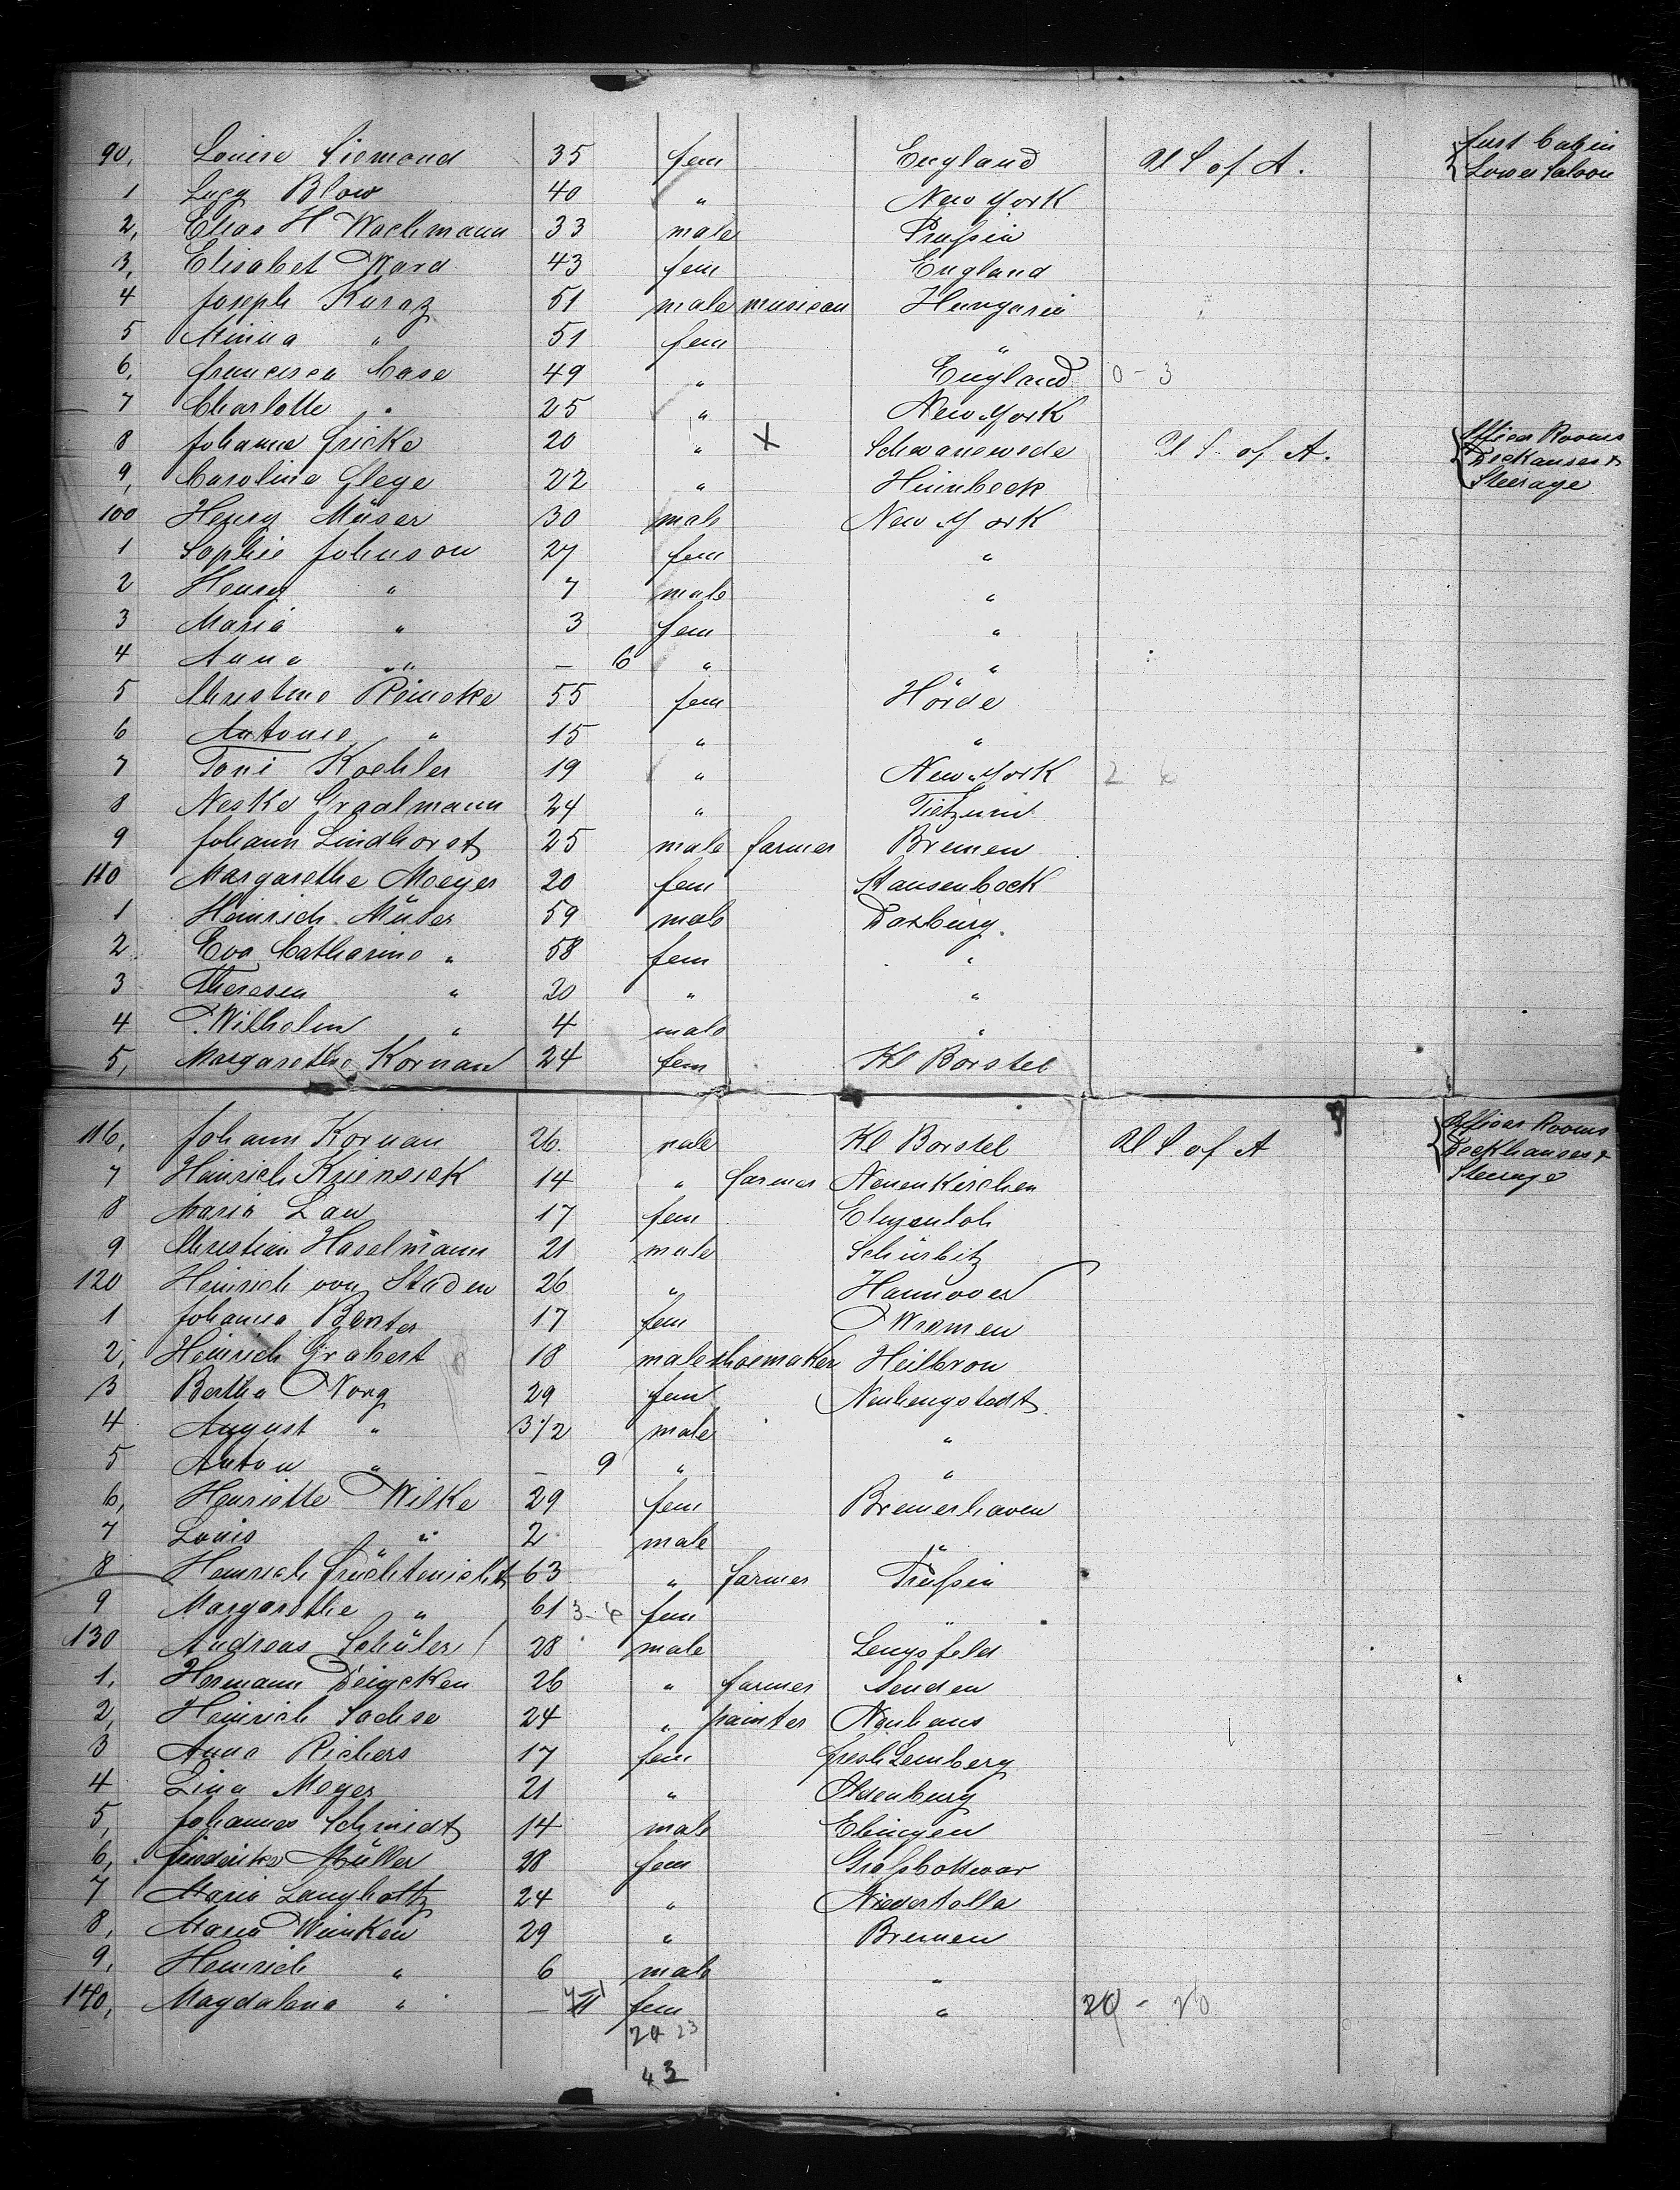 90, Louise Siemond 35 fem England U S of A. First Cabin
Lower Saloon
1 Lucy Blow 40 " New York
2, Elias H Wachmann 33 male Prußia
3, Elisabet Ward 43 fem England
4 Joseph Kuraz 51 male musican Hungaria
5 Minna " 51 fem "
6, Francisca Case 49 " England 0-3
7 Charlotte " 25 " New York
8 Johanna Fricke 20 " X Schwanewede U S of A. Officer Rooms
Deckhauses &
Steerage
9, Caroline Glege 22 " Heinbeck
100 Henry Müser 30 male New York
1 Sophie Johnson 27 fem "
2 Henry " 7 male "
3 Maria " 3 fem "
4 Anna " – 6 " "
5 Christine Reineke 55 fem Hörde
6 Antonie " 15 " "
7 Toni Koehler 19 " New York 2 6
8 Neske Graalmann 24 "
9 Johann Lindhorst 25 male farmer Bremen
110 Margarethe Meeyer 20 fem
1 Heinrich Müser 59 male Dasburg.
2 Eva Catharine " 58 fem "
3 Theresen " 20 " "
4 Wilhelm " 4 male "
5, Margarethe Kornau 24 fem Kl Borstel
116, Johann Kornau 26 male Kl Borstel U S of A Officer Rooms
Deckhauses &
Steerage
7 Heinrich Krienseck 14 " farmer Neuenkirchen
8 Maria Lau 17 fem
9 Christian Haselmann 21 male Schürbitz
120 Heinrich von Staden 26 " Hannover
1 Johanna Benter 17 fem Wremen
2, Heinrich Grabert 18 male shoemaker Heilbron
3 Bertha Norg 29 fem Neuhengstedt
4 August " 3 1/2 male "
5 Anton " – 9 " "
6, Henriette Wilke 29 fem Bremerhaven
7 Louis " 2 male "
8 Heinrich Früchtenicht 63 " farmer Prußia
9 Margarethe " 61 fem "
130 Andreas Schüler 28 male Lengsfeld
1, Hermann Deigcken 26 " farmer Senden
2, Heinrich Sachse 24 " painter Neuhaus
3 Anna Richers 17 fem
4 Lina Meyer 21 " Oldenburg
5, Johannes Schmidt 14 male Ebingen
6, Friederike Müller 28 fem Großbottwar
7 Maria Langholtz 24 " Niedertalla
8, Maria Winken 29 " Bremen
9, Heinrich " 6 male "
140, Magdalena " – fem " 20 - 26
20 23
43